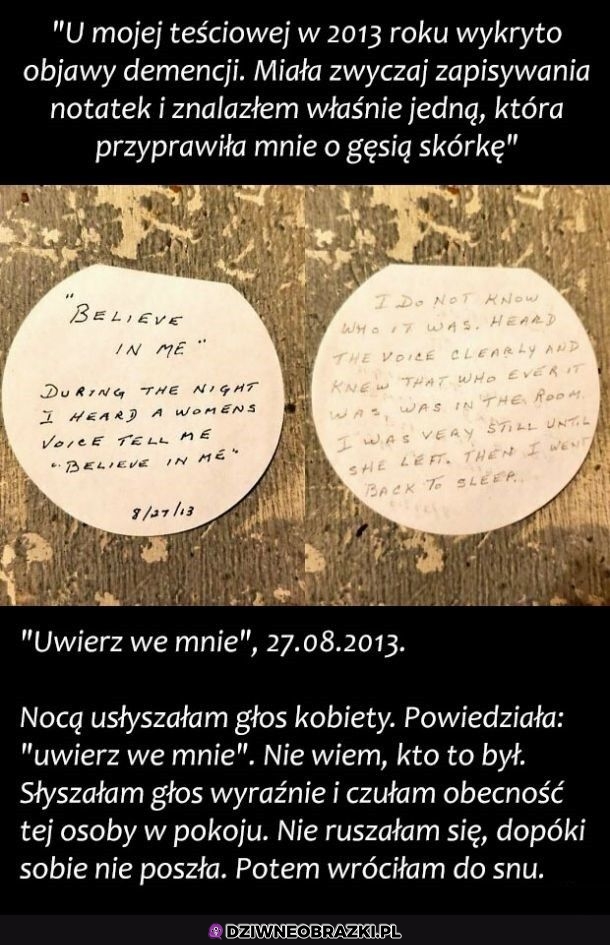 "U mojej teściowej w 2013 roku wykryto
objawy demencji. Miała zwyczaj zapisywania
notatek i znalazłem właśnie jedną, która
przyprawiła mnie o gęsią skórkę"
"BELIEVE
IN ME"
DURING THE NIGHT
I HEARD A WOMENS
VOICE TELL ME
"BELIEVE IN ME"
8/27/13
I DO NOT KNOW
WHO IT WAS. HEARD
THE VOICE CLEARLY AND
KNEW THAT WHO EVER IT
WAS, WAS IN THE ROOM.
I WAS VERY STILL UNTIL
SHE LEFT. THEN I WENT
BACK TO SLEEP.
"Uwierz we mnie", 27.08.2013.
Nocą usłyszałam głos kobiety. Powiedziała:
"uwierz we mnie". Nie wiem, kto to był.
Słyszałam głos wyraźnie i czułam obecność
tej osoby w pokoju. Nie ruszałam się, dopóki
sobie nie poszła. Potem wróciłam do snu.
DZIWNEOBRAZKI.PL